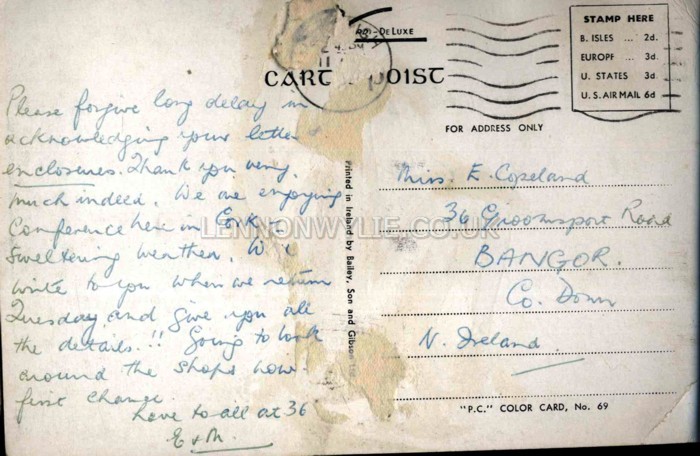 STAMP HERE
B. ISLES ... 2d.
EUROPE ... 3d.
U. STATES 3d.
U.S. AIR MAIL 6d
DE LUXE
CARTA POIST
FOR ADDRESS ONLY
Please forgive long delay in
acknowledging your letter
enclosures. Thank you very
much indeed. We are enjoying
Conference here in Cork
Sweltering weather. We
write to you when we return
Tuesday and give you all
the details.!! Going to look
around the shops now
first chance.
Love to all at 36
E & M.
Printed in Ireland by Bailey, Son and Gibson
Miss. E. Copeland
36 Groomsport Road
BANGOR.
Co. Down
N. Ireland.
"P.C." COLOR CARD, No. 69
LENNONWYLIE.CO.UK